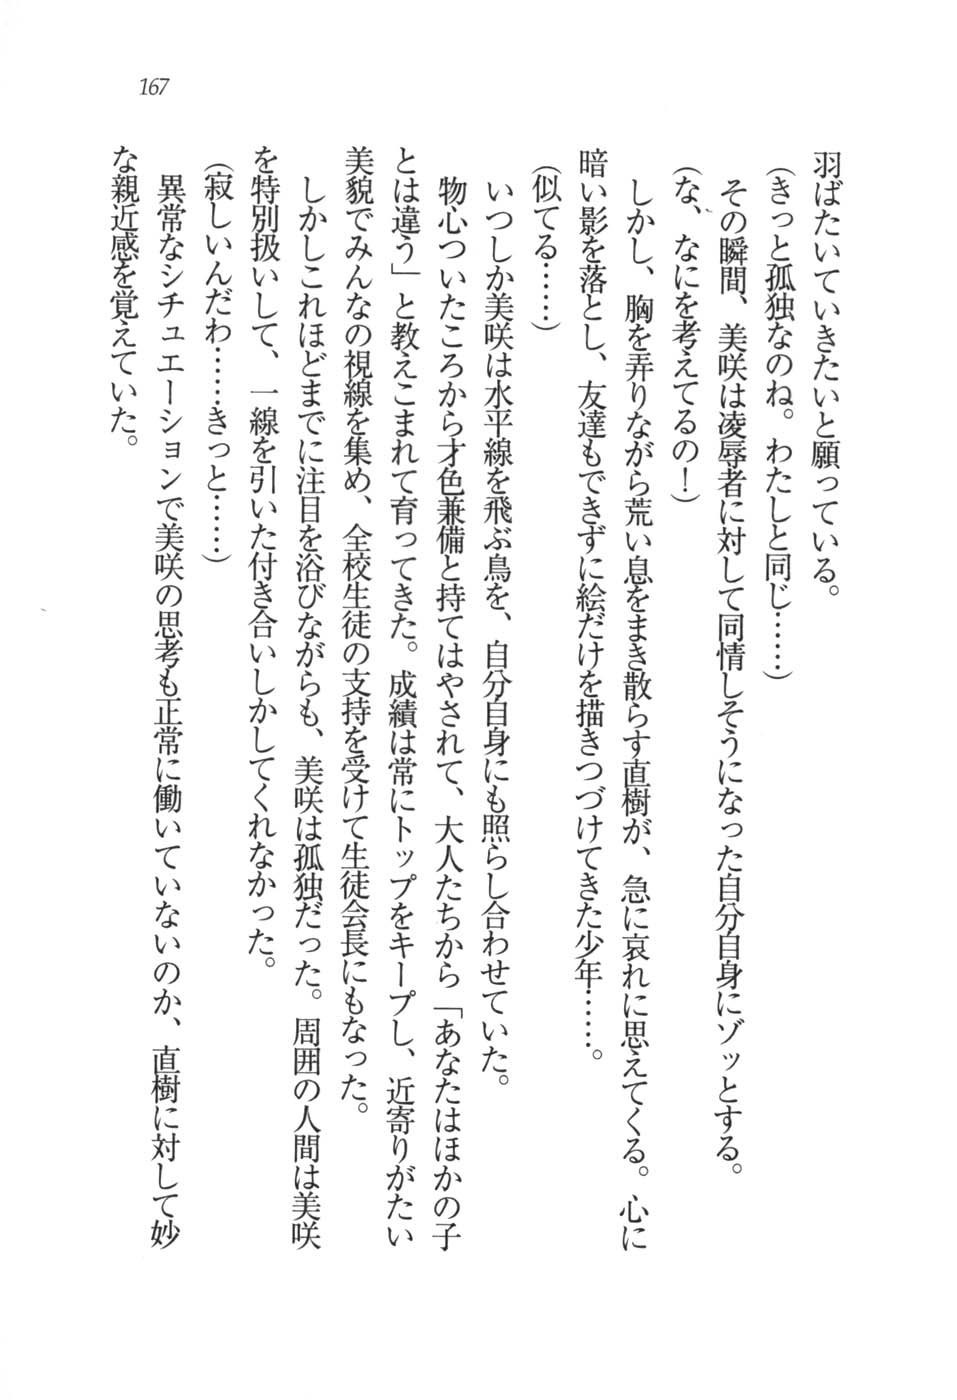 167
羽ばたいていきたいと願っている。
(きっと孤独なのね。わたしと同じ……)
その瞬間、美咲は凌辱者に対して同情しそうになった自分自身にゾッとする。
(な、なにを考えてるの！)
しかし、胸を弄りながら荒い息をまき散らす直樹が、急に哀れに思えてくる。心に
暗い影を落とし、友達もできずに絵だけを描きつづけてきた少年……。
(似てる……)
いつしか美咲は水平線を飛ぶ鳥を、自分自身にも照らし合わせていた。
物心ついたころから才色兼備と持てはやされて、大人たちから「あなたはほかの子
とは違う」と教えこまれて育ってきた。成績は常にトップをキープし、近寄りがたい
美貌でみんなの視線を集め、全校生徒の支持を受けて生徒会長にもなった。
しかしこれほどまでに注目を浴びながらも、美咲は孤独だった。周囲の人間は美咲
を特別扱いして、一線を引いた付き合いしかしてくれなかった。
(寂しいんだわ……きっと……)
異常なシチュエーションで美咲の思考も正常に働いていないのか、直樹に対して妙
な親近感を覚えていた。